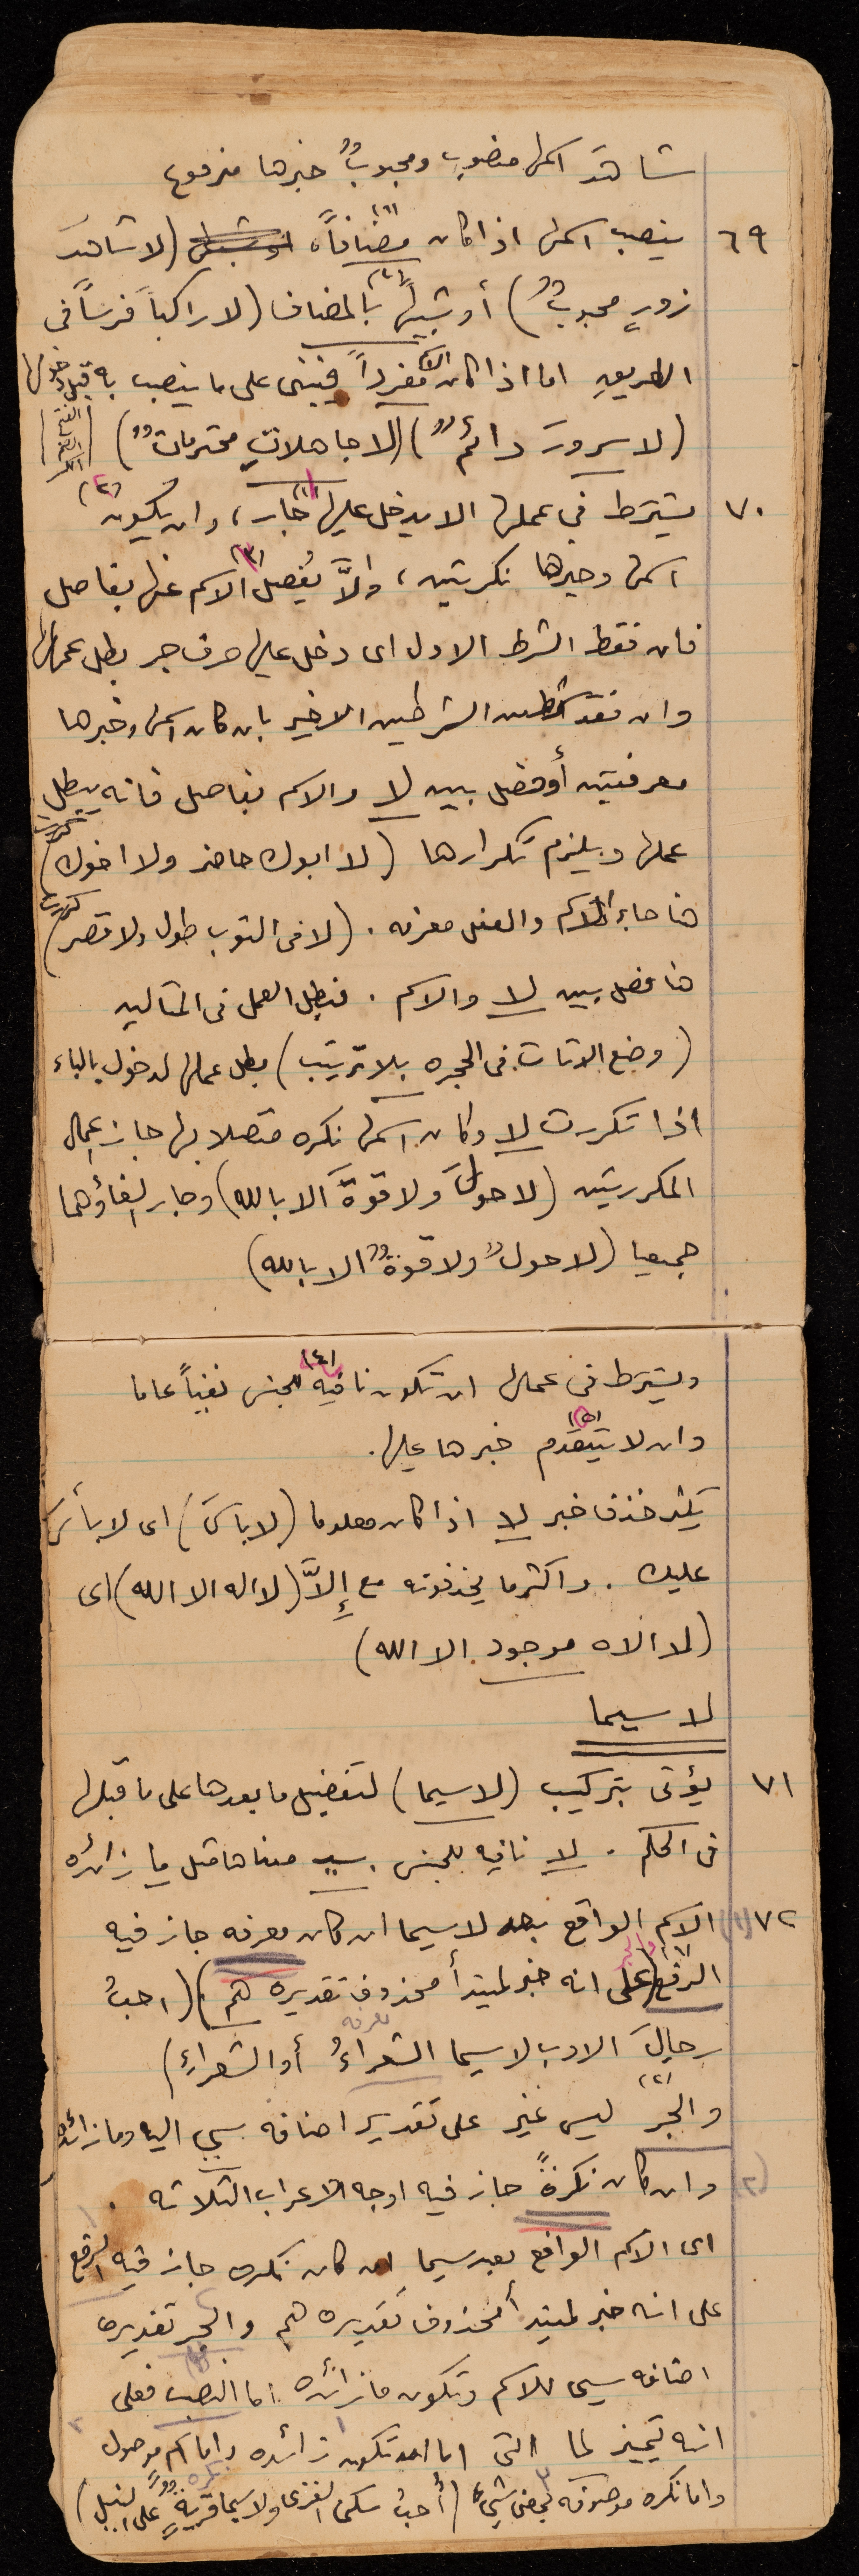 شاهدَ اسمها منصوب ومحبوبٌ خبرها مرفوع
٦٩ ينصب اسمها اذا كان (١) مضنافاً (لا شاهدَ
زورٍ محبوبٌ) أو شبيهاً (٢) بالمضاف (لا راكباً فرساً فى
الطريق اما اذا كان الاسم مفرداً فيبنى على ما ينصب به قبل دخولها
(لا سرورَ دائمٌ) (لا جاهلاتِ محترماتٌ)
٧٠ يشترط فى عملها الا يدخل عليها (١) جار، وان يكون (٢)
اسمها وخبرها نكرتين، والاَّ يُفصل (٣) الاسم عنها بفاصل
فان فقط الشرط الاول اى دخل عليها حرف جر بطل عملها
وان فقد الشرطين الاخير بان كان اسمها وخبرها
معرفتين أو فصل بين لا والاسم بفاصل فانه يبطل
عملها ويلزم تكرارها (لا ابوك حاضر ولا اخوك) تكررت
هنا جاء الاسم معرفه . (لا فى التوب طول ولا قصر) تكررت
هنا فصل بين لا والاسم . فبطل العمل فى المثالين
(وضع الاثاث فى الحجره بلا ترتيب) بطل عملها لدخول بالباء
اذا تكررت لا وكان اسمها نكره متصلا بها جاز اعمال
المكررتين (لا حولَ ولا قوةَ الا بالله) وجاز الغاؤهما
جميعا (لا حولٌ ولا قوةٌ الا بالله)
ويشترط فى عملها ان تكون نافيه (٤) للجنس نفياً عاما
وان لا يتقدم (٥) خبرها عليها.
يكثر حذف خبر لا اذا كان معلوما (لا باسَ) اى لا بأسَ
عليك . واكثر ما يحذفونه مع إلاَّ (لا اله الا الله) اى
(لا الاه موجود الا الله)
لا سيما
٧١ يؤتى بتركيب (لا سيما) لتفضيل ما بعدها على ما قبلها
فى الحكم . لا نافيه للجنس . سي معناها مثل ما زائده
٧٢ (١) الاسم الواقع بعد لا سيما ان كان معرفه جاز فيه
(١) الرفع على انه خبر لمبتدأ محذوف تقديره هم) (احبُ
رجالَ الادب لا سيما الشعراءُ أو الشعراءِ) معرفه
(٢) والجر ليس غير على تقدير اضافه سي اليه وما زائده
(٢) وان كان نكرةً جاز فيه اوجه الاعراب الثلاثه .
اى الاسم الواقع بعد سيما ان كان نكره جاز فيه الرفع
على انه خبر لمبتدأ محذوف تقديره هم والجر تقديره
اضافه سي للاسم وتكون ما زائده اما النصب فعلى
انه تمييز لما التى اما ان تكون زائده واما اسم موصول
واما نكره موصوفه بمعنى شيء (أحبُ سكنى القرى ولا سيما قرية على النيل) نكره